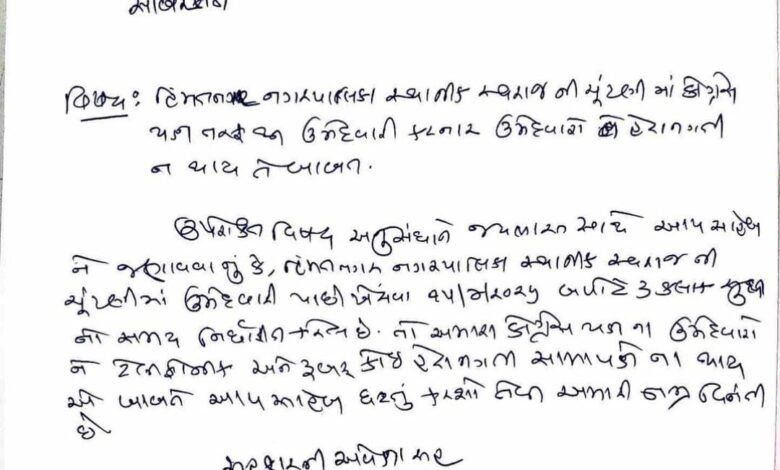 સાબરકાંઠા
વિષય : હિંમતનગર નગરપાલિકા સ્થાનીક સ્વરાજ ની ચૂંટણી માં કોંગ્રેસ
પક્ષ તરફથી ઉમેદવારી કરનાર ઉમેદવારો ને હેરાનગતી
ન થાય તે બાબત.
ઉપરોક્ત વિષય અનુસંધાને જયભારત સાથે આપ સાહેબ
ને જણાવવાનું કે, હિંમતનગર નગરપાલિકા સ્થાનીક સ્વરાજ ની
ચૂંટણીમાં ઉમેદવારી પાછી ખેંચવા બપોરે 3 કલાક સુધી
નો સમય નિર્ધારીત કરેલ છે. તો અમારા કોંગ્રેસ પક્ષ ના ઉમેદવારો
ને અને રૂબરૂ કોઇ હેરાનગતી સામાપક્ષો ના થાય
એ બાબતે આપ સાહેબ ઘટતું કરશો તેવી અમારી નમ્ર વિનંતી
છે.
સહકારની અપેક્ષા સહ